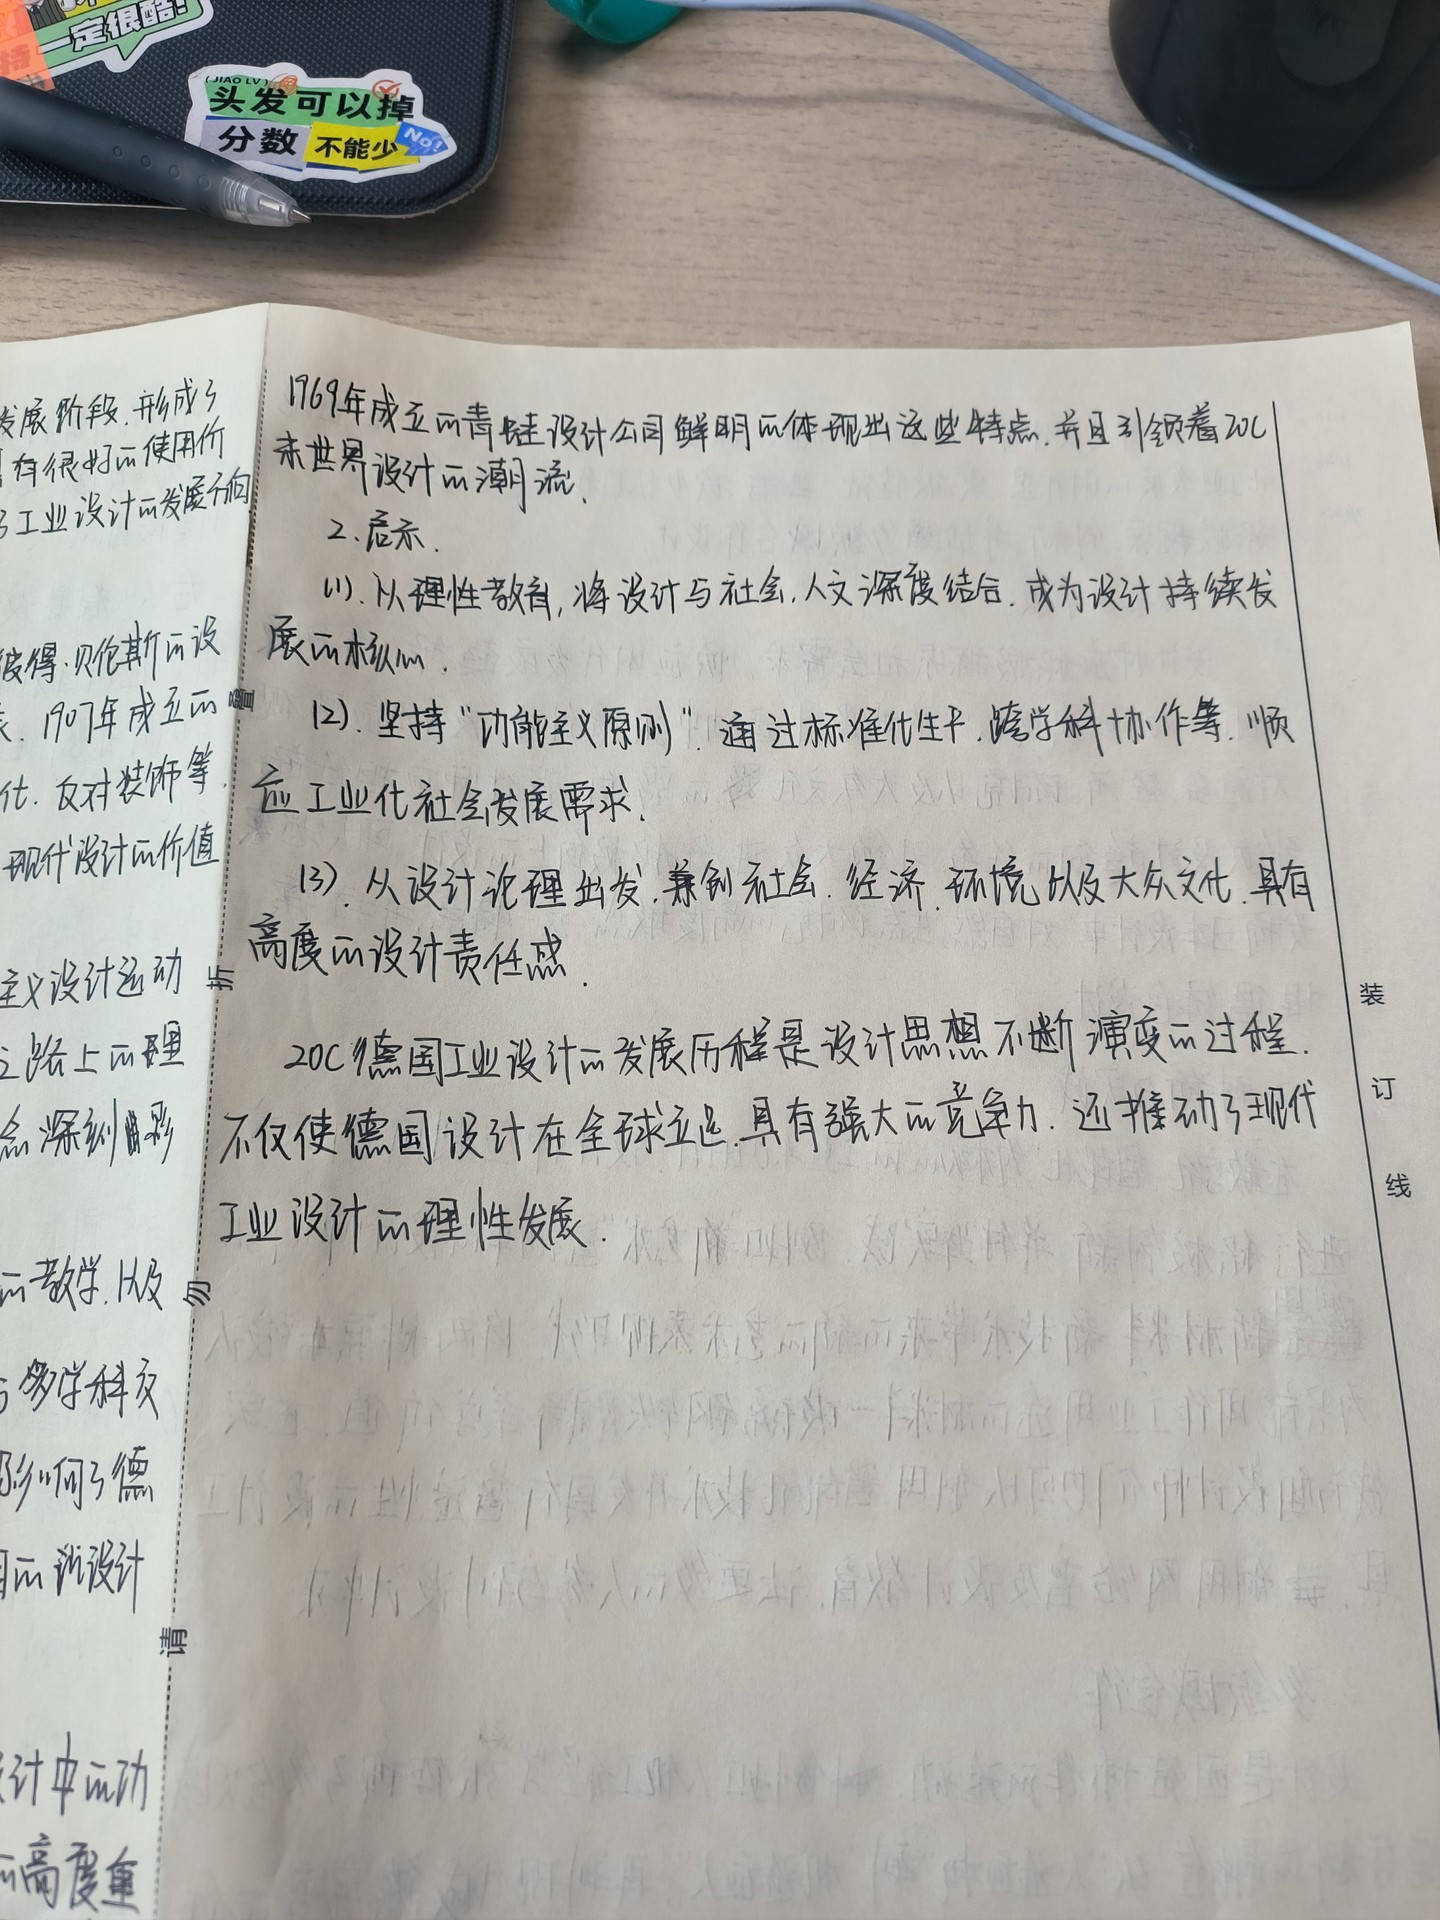 一定很酷!
(JIAO LV)
头发可以掉
分数 不能少 NO!
发展阶段.形成了
有很好的使用价
了工业设计的发展方向
彼得·贝伦斯的设
1907年成立的
化.反对装饰等.
现代设计的价值
主义设计运动
之路上的理
念深刻影
的教学.以及
与多学科交
影响了德
的设计
设计中的功
的高度重
1969年成立的青蛙设计公司鲜明的体现出这些特点.并且引领着20C
末世界设计的潮流.
2.启示.
(1).从理性教育,将设计与社会.人文深度结合.成为设计持续发
展的核心.
(2).坚持“功能主义原则”.通过标准化生产.跨学科协作等.顺
应工业化社会发展需求.
(3).从设计论理出发.兼创社会.经济.环境以及大众文化.具有
高度的设计责任感.
20C德国工业设计的发展历程是设计思想不断演变的过程.
不仅使德国设计在全球立足.具有强大的竞争力.还推动了现代
工业设计的理性发展.
折
勿
请
装
订
线